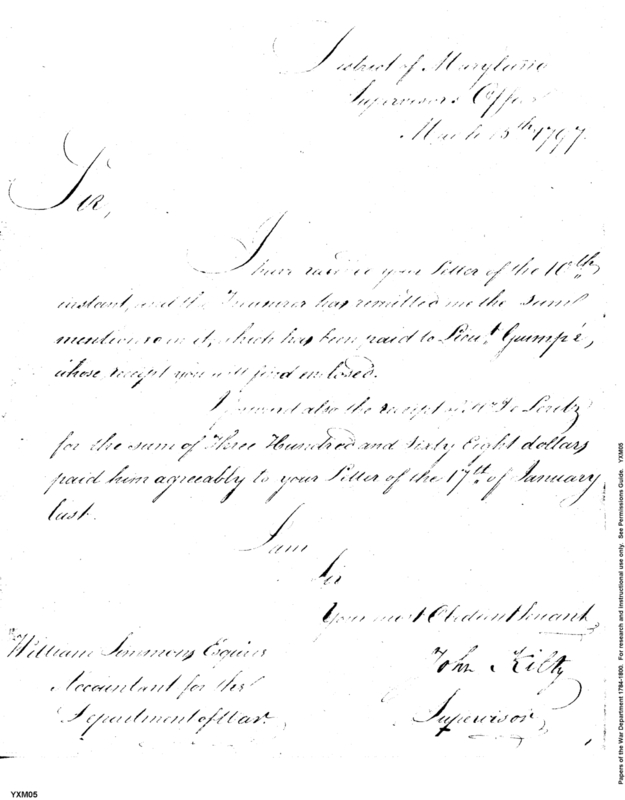 District of Maryland
Supervisors Office
March 15th 1797.
Sir,
I have received your Letter of the 10th
instant, and the Treasurer has remitted me the sum
mentioned in it, which has been paid to Lieut. Gumpé,
whose receipt you will find enclosed.
I forward also the receipt of De Leretz
for the sum of Three Hundred and Sixty Eight dollars
paid him agreeably to your Letter of the 17th of January
last.
I am
Sir
Your most Obedient Servant
William Simmons Esquire
Accountant for the
Department of War.
John Kilty
Supervisor
YXM05
Papers of the War Department 1784-1800. For research and instructional use only. See Permissions Guide. YXM05